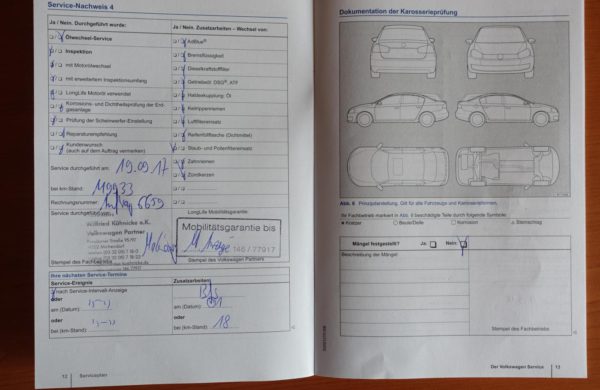 Service-Nachweis 4
Ja / Nein. Durchgeführt wurde:
Ölwechsel-Service
Inspektion
mit Motorölwechsel
mit erweitertem Inspektionsumfang
LongLife Motoröl verwendet
Korrosions- und Dichtheitsprüfung der Erdgasanlage
Prüfung der Scheinwerfer-Einstellung
Reparaturempfehlung
Kundenwunsch
(auch auf dem Auftrag vermerken)
Service durchgeführt am: 19.09.17
bei km-Stand:
Rechnungsnummer
Service durchgeführt
Wilfried Kühnicke e.K.
Volkswagen Partner
Stempel des Fachbetriebs
Ja / Nein. Zusatzarbeiten – Wechsel von:
AdBlue®
Bremsflüssigkeit
Dieselkraftstofffilter
Getriebeöl: DSG®, ATF
Haldexkupplung: Öl
Keilrippenriemen
Luftfiltereinsatz
Reifenfüllflasche (Dichtmittel)
Staub- und Pollenfiltereinsatz
Zahnriemen
Zündkerzen
LongLife Mobilitätsgarantie:
Mobilitätsgarantie bis
146 / 77917
Stempel des Volkswagen Partners
Ihre nächsten Service-Termine
Service-Ereignis
nach Service-Intervall-Anzeige
oder
am (Datum):
oder
bei (km-Stand):
Zusatzarbeiten:
am (Datum):
oder
bei (km-Stand): 18
12 Serviceplan
Dokumentation der Karosserieprüfung
Abb. 8 Prinzipdarstellung. Gilt für alle Fahrzeuge und Karosserieformen.
Ihr Fachbetrieb markiert in Abb. 8 beschädigte Teile durch folgende Symbole:
Kratzer Beule/Delle Korrosion Steinschlag
Mängel festgestellt? Ja: Nein:
Beschreibung der Mängel
Stempel des Fachbetriebs
Der Volkswagen Service 13